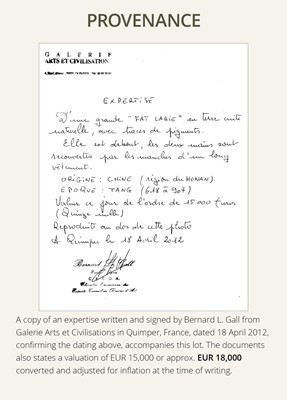 PROVENANCE
GALERIE
ARTS ET CIVILISATION
EXPERTISE
D'une grande "FAT LADIE" en terre cuite
naturelle, avec traces de pigments.
Elle est debout, les deux mains sont
recouvertes par les manches d'un long
vêtement.
ORIGINE : CHINE (région du HONAN)
EPOQUE : TANG (618 à 907)
Valeur ce jour de l'ordre de 15.000 Euros
(Quinze mille)
Reproduit au dos de cette photo
A Quimper le 18 Avril 2012
Bernard L. Gall
A copy of an expertise written and signed by Bernard L. Gall from
Galerie Arts et Civilisations in Quimper, France, dated 18 April 2012,
confirming the dating above, accompanies this lot. The documents
also states a valuation of EUR 15,000 or approx. EUR 18,000
converted and adjusted for inflation at the time of writing.